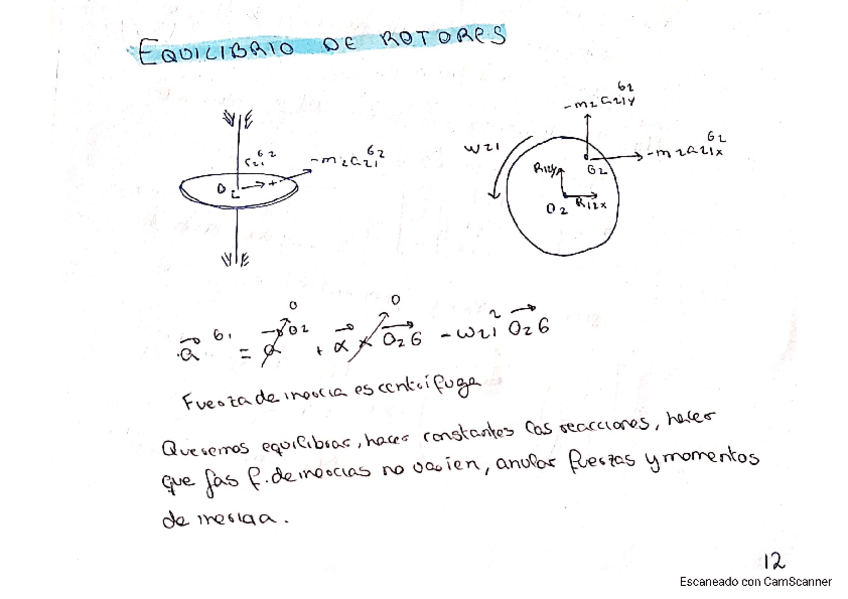 EQUILIBRIO DE ROTORES
-m₂a₂₁ʸ G2
G2
r₂₁
-m₂a₂₁ G2
O₂
ω21
-m₂a₂₁ₓ G2
R12y
G2
O2 R12x
a G1 = a O2 0 + α x O₂G 0 - ω21² O₂G
Fuerza de inercia es centrífuga
Queremos equilibrar, hacer constantes las reacciones, hacer
que las f. de inercias no varien, anular fuerzas y momentos
de inercia.
12
Escaneado con CamScanner